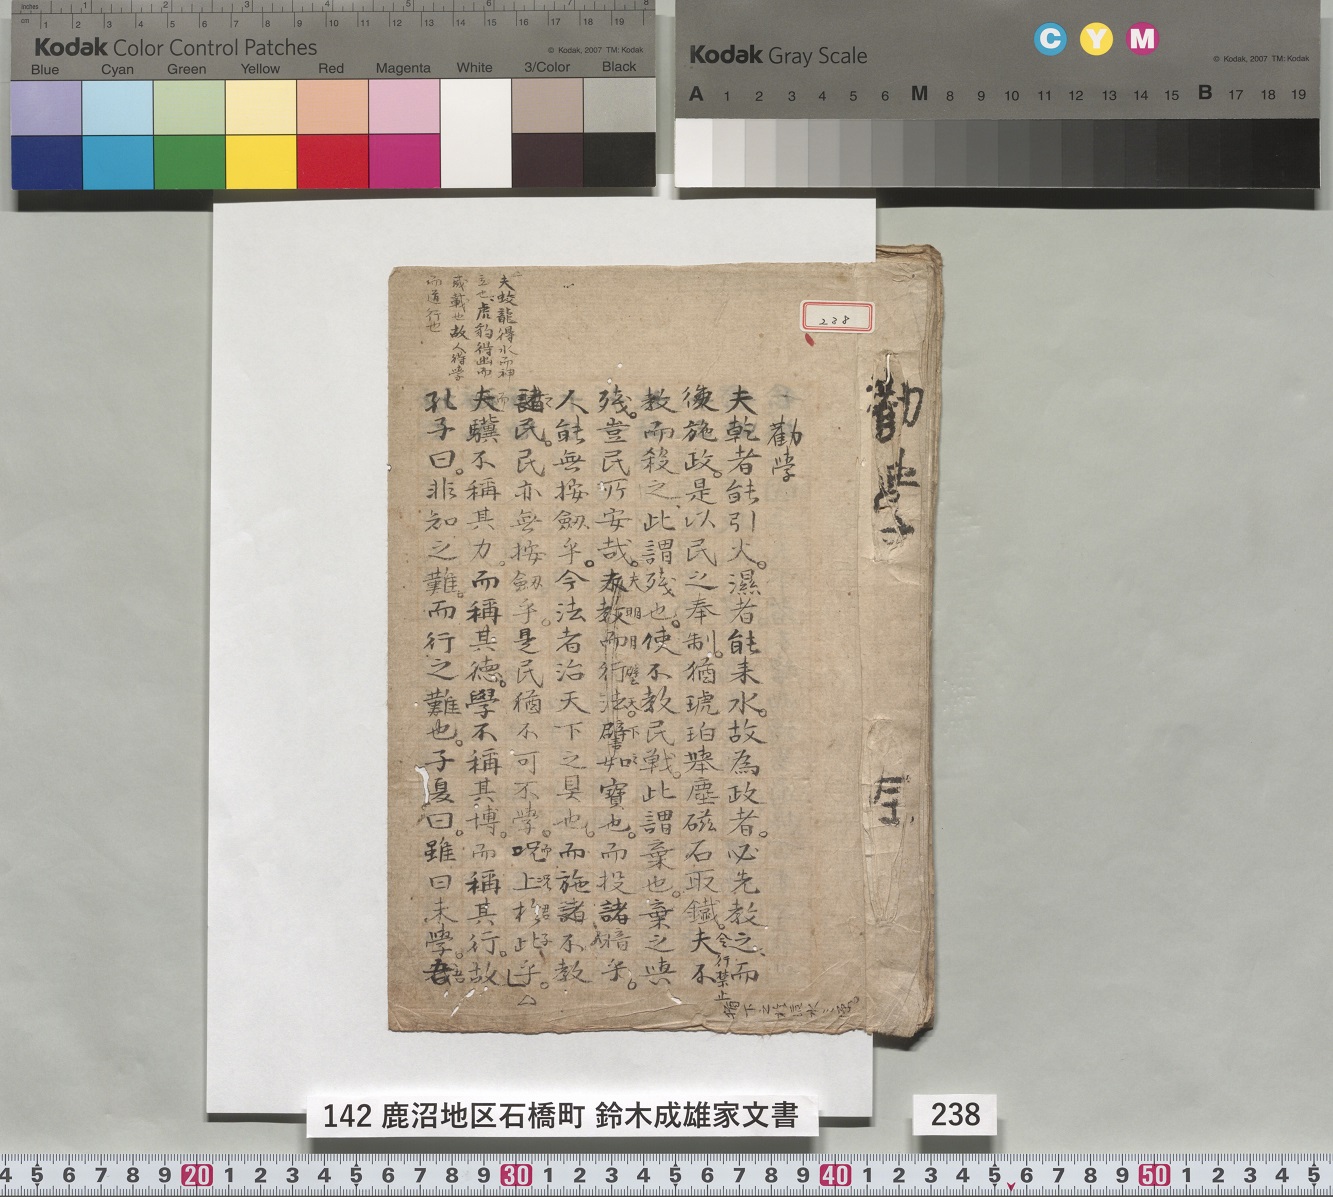 Kodak Color Control Patches
© Kodak, 2007 TM: Kodak
Blue Cyan Green Yellow Red Magenta White 3/Color Black
Kodak Gray Scale
C Y M
© Kodak, 2007 TM: Kodak
A 1 2 3 4 5 6 M 8 9 10 11 12 13 14 15 B 17 18 19
238
勸學
勸學
夫乾者能引火。濕者能来水。故為政者。必先教之而
後施政。是以民之奉制。猶琥珀舉塵磁石取鐵。夫不
令行禁止猶下之
教而殺之此謂殘也。使不教民戦。此謂棄也。棄之與
殘。豈民所安哉。夫教而行法譬如寶也。而投諸暗乎。
夫明月璧天下
人能無按劔乎。今法者治天下之具也。而施諸不教
諸民。民亦無按劔乎。是民猶不可不學。况上於此乎。
而况君子
夫驥不稱其力。而稱其德。學不稱其博。而稱其行。故
孔子曰。非知之難。而行之難也。子夏曰。雖曰未學。吾
夫蛟龍得水而神
立也虎豹得幽而
威載也故人得學
而道行也
142 鹿沼地区石橋町 鈴木成雄家文書
238
4 5 6 7 8 9 20 1 2 3 4 5 6 7 8 9 30 1 2 3 4 5 6 7 8 9 40 1 2 3 4 5 6 7 8 9 50 1 2 3 4 5